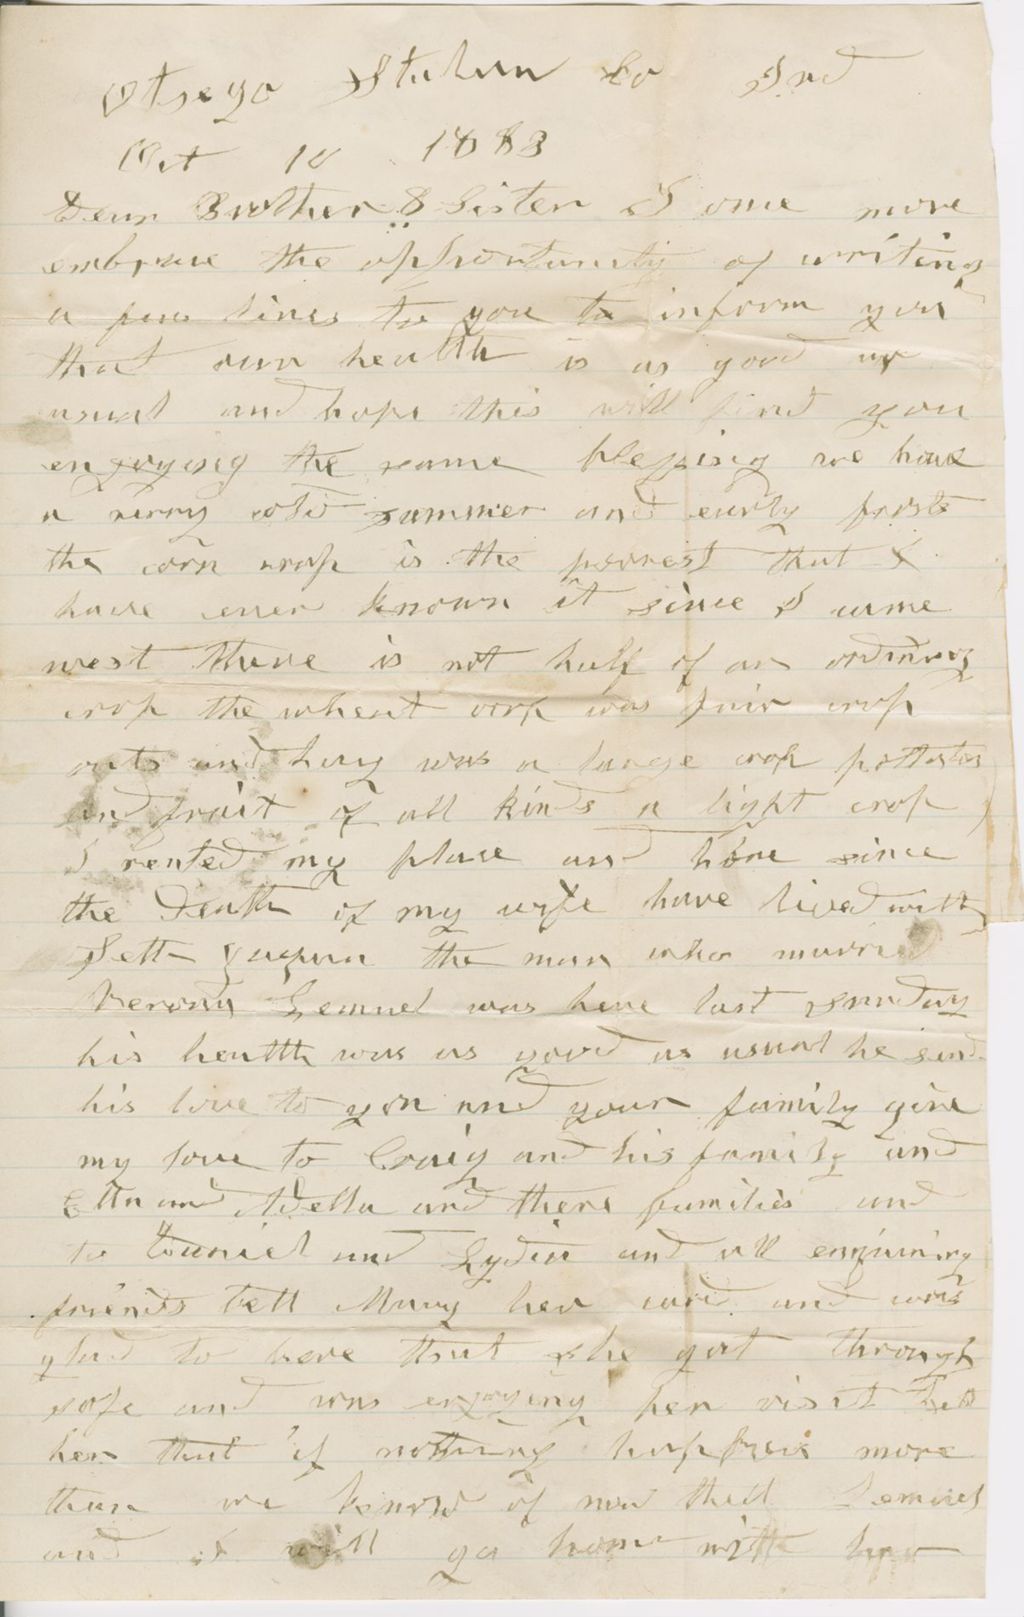 Otsego Stuben Co Ind
Oct 10 1883
Dear Brother & Sister I once more
embrace the opportunity of writing
a few lines to you to inform you
that our health is as good as
usual and hope this will find you
engoying the same blessing we have
a verry cold summer and early frosts
the corn crop is the poorest that I
have ever known it since I came
west there is not half of an ordinrey
crop the wheat crop was fair crop
oats and hay was a large crop pottatos
and fruit of all kinds a light crop
I rented my place and have since
the death of my wife have lived with
Seth the man who married
Lemuel was here last sunday
his heatth was as good as usual he send
his love to you and your family give
my love to Craig and his family and
Etta and Adella and there families and
to Daniel and Lydia and all enquiring
friends tell Mary her card and was
glad to here that she got through
safe and was engoying her visit tell
her that if nothing happens more
than we know of now that Lemuel
and I will go home with her